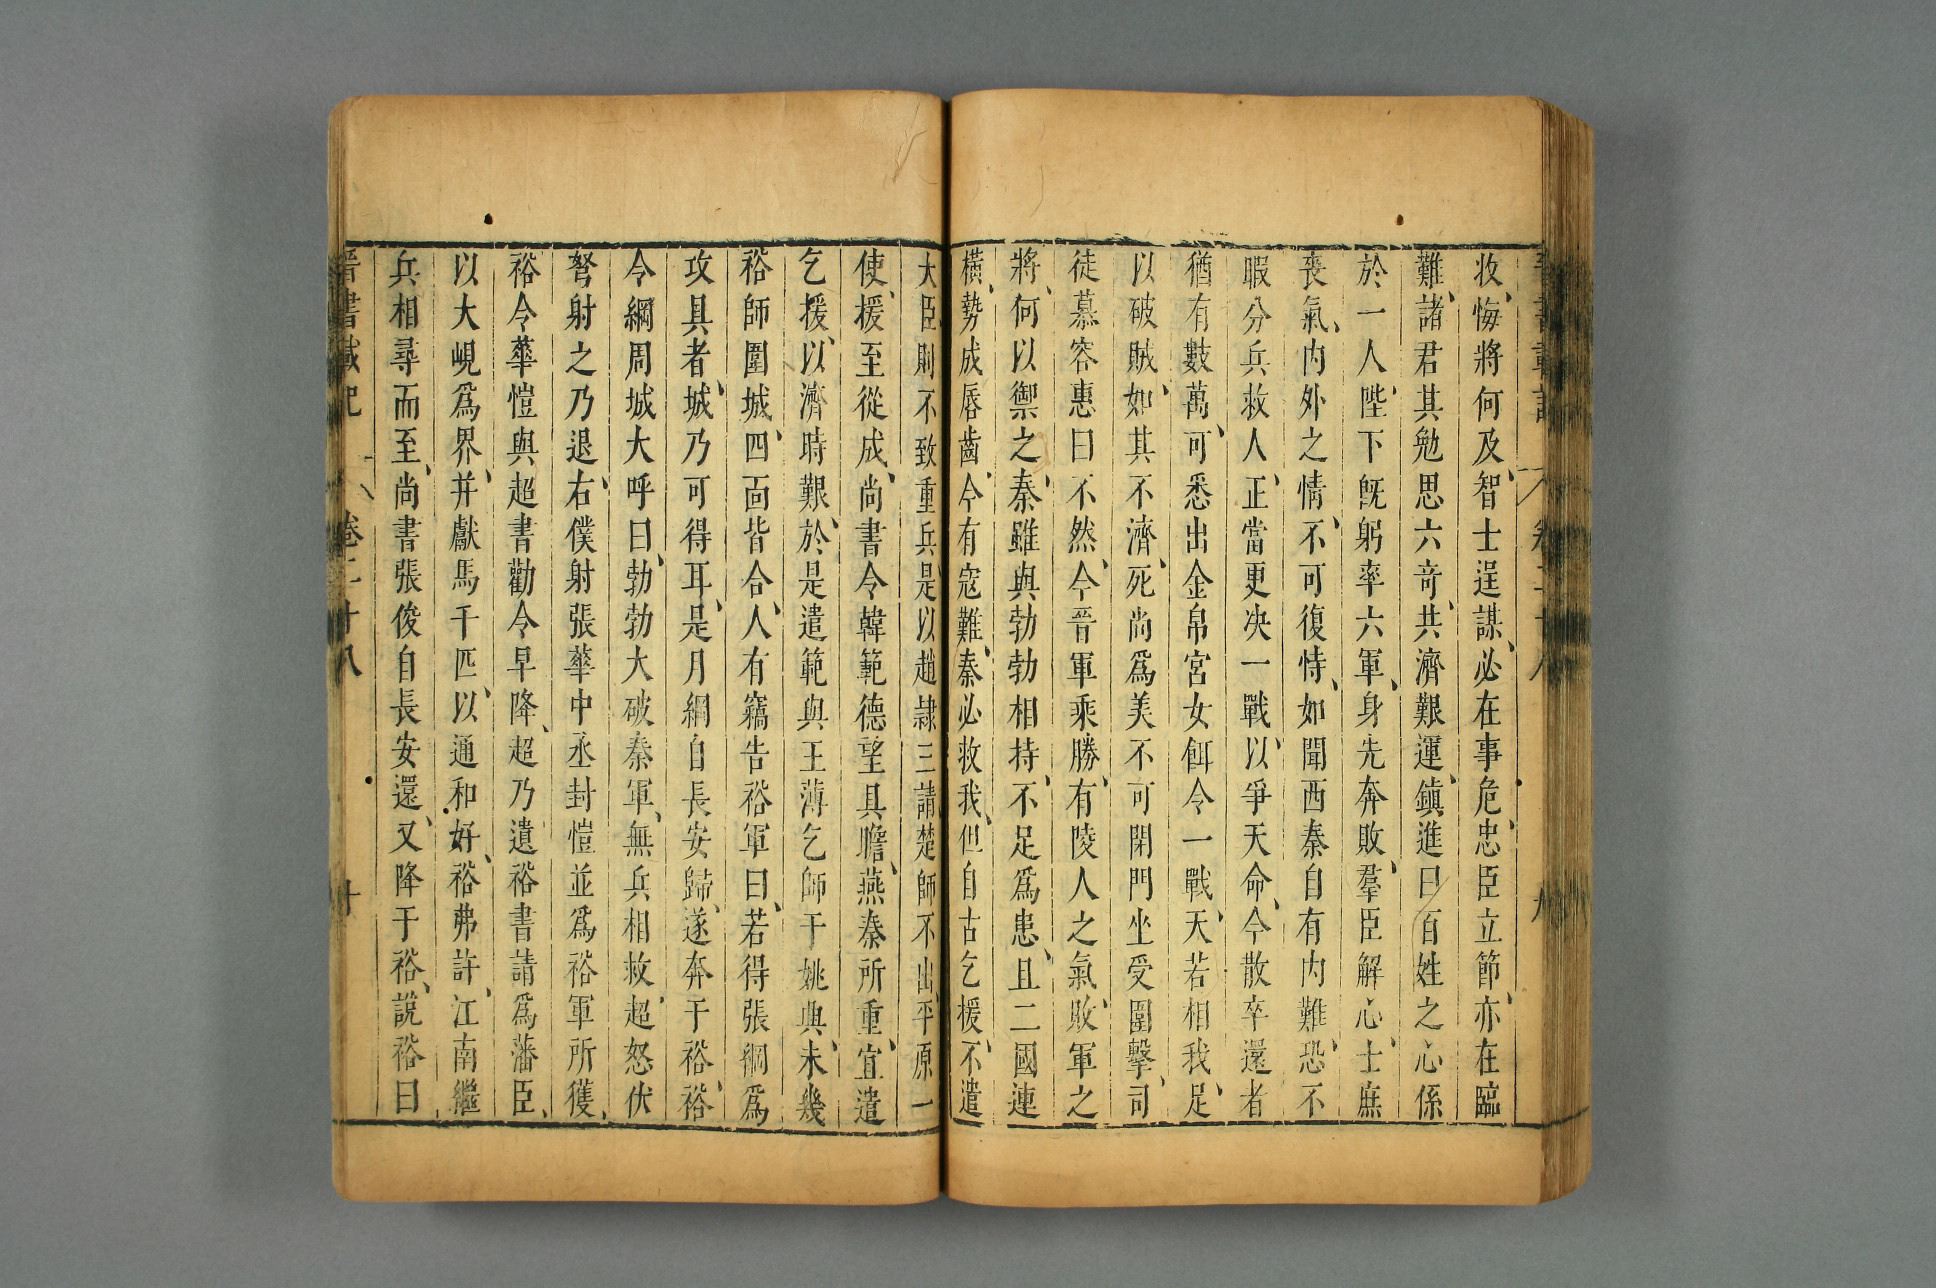 收悔將何及智士逞謀必在事危忠臣立節亦在臨
難諸君其勉思六奇共濟艱運鎮進曰百姓之心係
於一人陛下旣躬率六軍身先奔敗羣臣解心士庶
喪氣內外之情不可復恃如聞西秦自有內難恐不
暇分兵救人正當更决一戰以爭天命今散卒還者
猶有數萬可悉出金帛宮女餌令一戰天若相我足
以破賊如其不濟死尚爲美不可閉門坐受圍擊司
徒慕容惠曰不然今晉軍乘勝有陵人之氣敗軍之
將何以禦之秦雖與勃勃相持不足爲患且二國連
橫勢成唇齒今有寇難秦必救我但自古乞援不遣
大臣則不致重兵是以趙隷三請楚師不出平原一
使援至從成尚書令韓範德望具瞻燕秦所重宜遣
乞援以濟時艱於是遣範與王薄乞師于姚興未幾
裕師圍城四面皆合人有竊告裕軍曰若得張綱爲
攻具者城乃可得耳是月綱自長安歸遂奔于裕裕
令綱周城大呼曰勃勃大破秦軍無兵相救超怒伏
弩射之乃退右僕射張華中丞封愷並爲裕軍所獲
裕令華愷與超書勸令早降超乃遺裕書請爲藩臣
以大峴爲界并獻馬千匹以通和好裕弗許江南繼
兵相尋而至尚書張俊自長安還又降于裕說裕曰
晉書載記 卷二十八 十